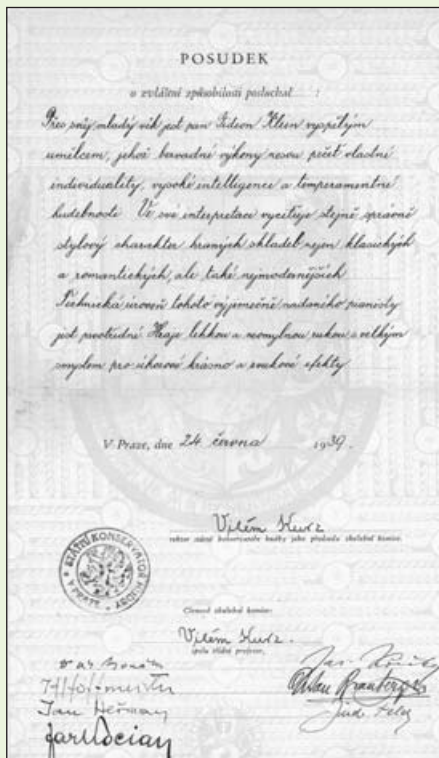 POSUDEK
o zvláštní způsobilosti posluchač :
Přes svůj mladý věk jest pan Gideon Klein vyspělým
umělcem, jehož bezvadné výkony nesou pečeť vlastní
individuality, vysoké intelligence a temperamentní
hudebnosti. Ve své interpretaci vyciťuje stejně správně
stylový charakter hraných skladeb nejen klasických
a romantických, ale také nejmodernějších
Technická úroveň tohoto výjimečně nadaného pianisty
jest prvotřídní. Hraje lehkou a neomylnou rukou s velkým
smyslem pro úhozovou krásno a zvukové efekty
V Praze, dne 24. června 1939.
Vilém Kurz
rektor státní konservatoře hudby jako předseda zkušební komise.
STÁTNÍ KONSERVATOŘ HUDBY V PRAZE
Členové zkušební komise:
Vilém Kurz.
spolu třídní profesor.
Jan Heřman
Jar. Kocian